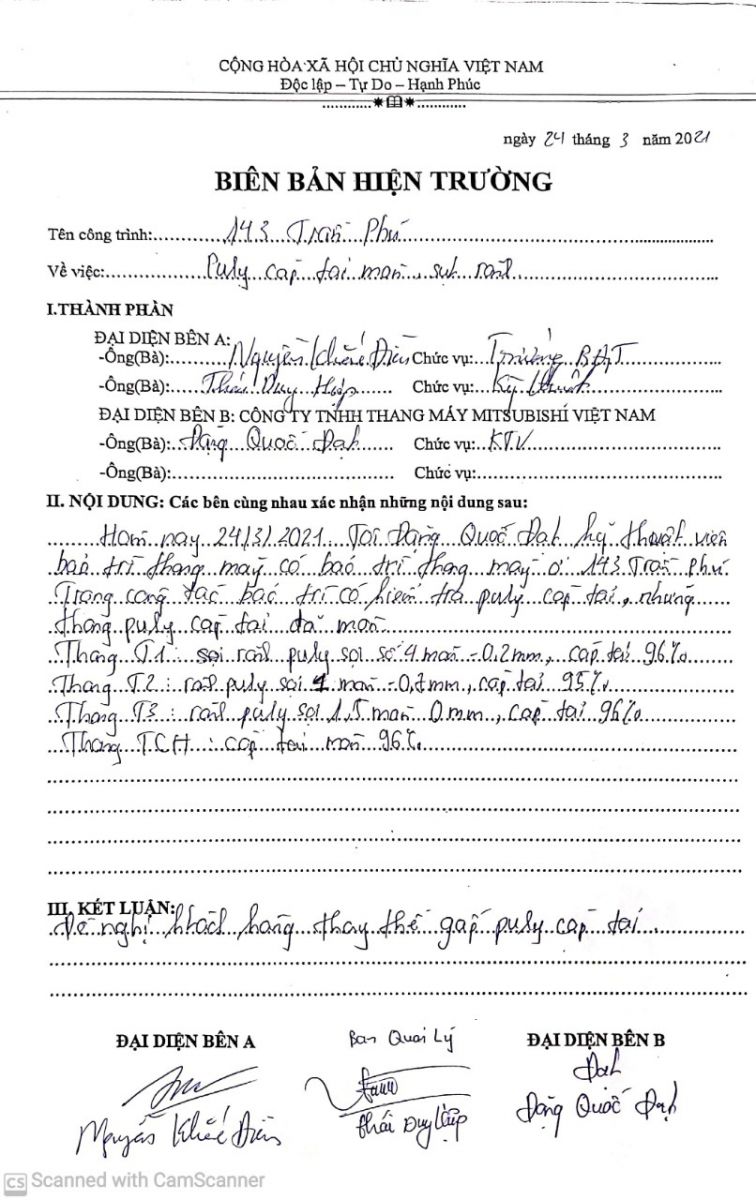 CỘNG HÒA XÃ HỘI CHỦ NGHĨA VIỆT NAM
Độc lập – Tự Do – Hạnh Phúc
ngày 24 tháng 3 năm 2021
BIÊN BẢN HIỆN TRƯỜNG
Tên công trình: 143 Trần Phú
Về việc: Puly cáp tải mòn, sụt rãnh
I.THÀNH PHẦN
ĐẠI DIỆN BÊN A:
-Ông(Bà): Nguyễn Khắc Điền Chức vụ: Trưởng BQT
-Ông(Bà): Thái Duy Hiệp Chức vụ: Kỹ thuật
ĐẠI DIỆN BÊN B: CÔNG TY TNHH THANG MÁY MITSUBISHI VIỆT NAM
-Ông(Bà): Đặng Quốc Đạt Chức vụ: KTV
-Ông(Bà): Chức vụ:
II. NỘI DUNG: Các bên cùng nhau xác nhận những nội dung sau:
Hôm nay 24/3/2021. Tôi Đặng Quốc Đạt kỹ thuật viên
bảo trì thang máy có bảo trì thang máy ở 143 Trần Phú.
Trong công tác bảo trì có kiểm tra puly cáp tải, nhưng
thang puly cáp tải đã mòn.
Thang T1: sợi rãnh puly sợi số 4 mòn -0,2mm, cáp tải 96%
Thang T2: rãnh puly sợi 1 mòn mm, cáp tải 95%
Thang T3: rãnh puly sợi 1,5 mòn 0mm, cáp tải 96%
Thang TCH: cáp tải mòn 96%
III. KẾT LUẬN:
Đề nghị khách hàng thay thế gấp puly cáp tải
ĐẠI DIỆN BÊN A Ban Quản Lý ĐẠI DIỆN BÊN B
Đạt
Nguyễn Khắc Điền Thái Duy Hiệp Đặng Quốc Đạt
CS Scanned with CamScanner